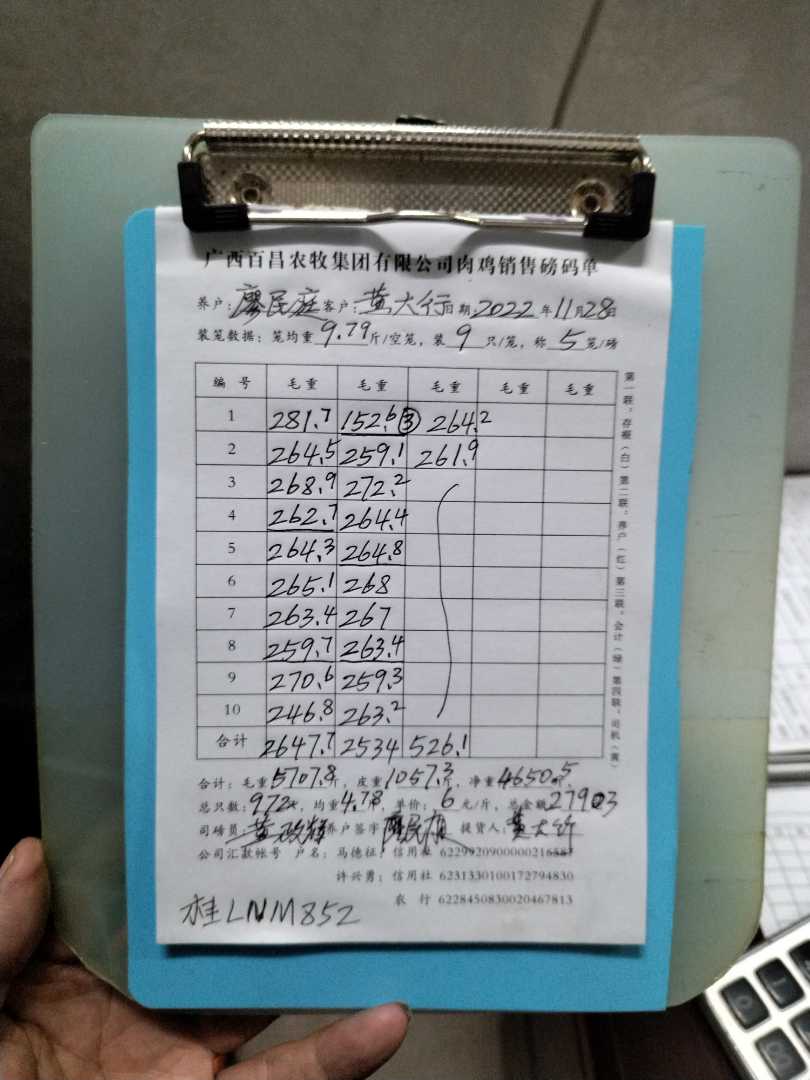 广西百昌农牧集团有限公司肉鸡销售磅码单
养户：廖民庭 客户：黄大行 日期：2022年11月28日
装笼数据：笼均重9.79斤/空笼，装9只/笼，称5笼/磅
编号 毛重 毛重 毛重 毛重 毛重
1 281.7 152.6③ 264.2
2 264.5 259.1 261.9
3 268.9 272.2
4 262.7 264.4
5 264.3 264.8
6 265.1 268
7 263.4 267
8 259.7 263.4
9 270.6 259.3
10 246.8 263.2
合计 2647.7 2534 526.1
合计：毛重5707.8斤，皮重1057.3斤，净重4650.5
总只数：972只，均重4.78 单价：6元/斤，总金额27903
司磅员 黄政辉 养户签字 提货人：黄大行
公司汇款帐号 户名：马德征：信用社
许兴勇：信用社 6231330100172794830
农行 6228450830020467813
桂LNM852
第一联：存根（白）第二联：养户（红）第三联：会计（绿）第四联：司机（黄）